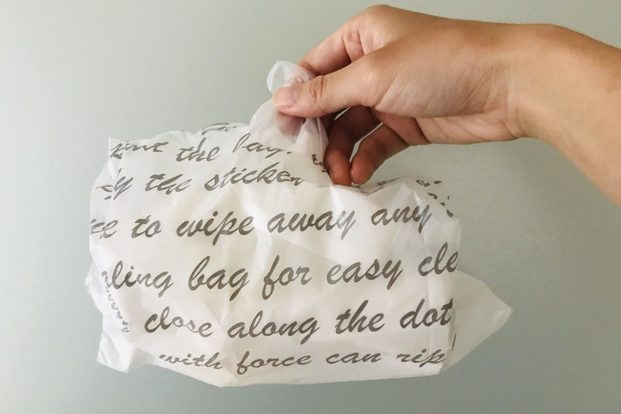 the bag.
the sticker
to wipe away any
ling bag for easy cle
close along the dot
with force can rip